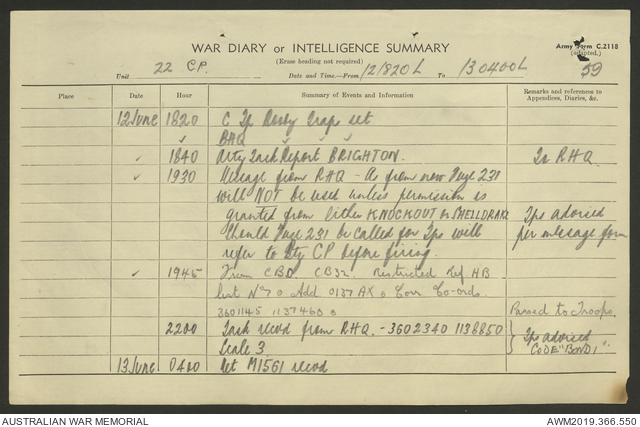 WAR DIARY or INTELLIGENCE SUMMARY
(Erase heading not required)
Army Form C.2118
(adapted.)
59
Unit 22 CP. Date and Time—From 121820L To 130400L
Place Date Hour Summary of Events and Information Remarks and references to Appendices, Diaries, &c.
12 June 1820 C Tp set
BHQ
1840 Arty Task Report BRIGHTON. To RHQ
1930 Message from RHQ - As from now Fuze 231
will NOT be used unless permission is
granted from either KNOCKOUT or SHELLDRAKE Tps advised
Should Fuze 231 be called for Tps will per message form
refer to Bty CP before firing.
1945 From CBO. CB32. Restricted Ref HB
list No 7 o Add 0137 AX o Corr Co-ords.
3601145 1137460 o Passed to Troops.
2200 Task recvd from RHQ - 3602340 1138850 Tps advised
Scale 3 CODE "BONDI".
13 June 0400 Met M1561 recvd
AUSTRALIAN WAR MEMORIAL AWM2019.366.550